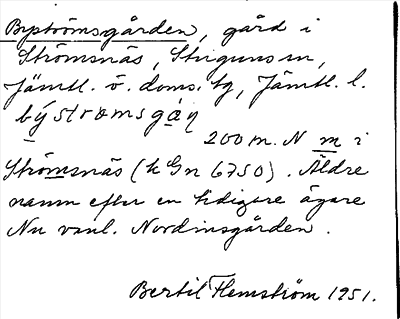 Byströmsgården, gård i
Strömsnäs, Stuguns sn,
Jämtl. ö. doms. tg, Jämtl. l.
býstromsgáṇ
200 m. N m i
Strömsnäs (k Gn 6750). Äldre
namn efter en tidigare ägare
Nu vanl. Nordinsgården.
Bertil Flemström 1951.